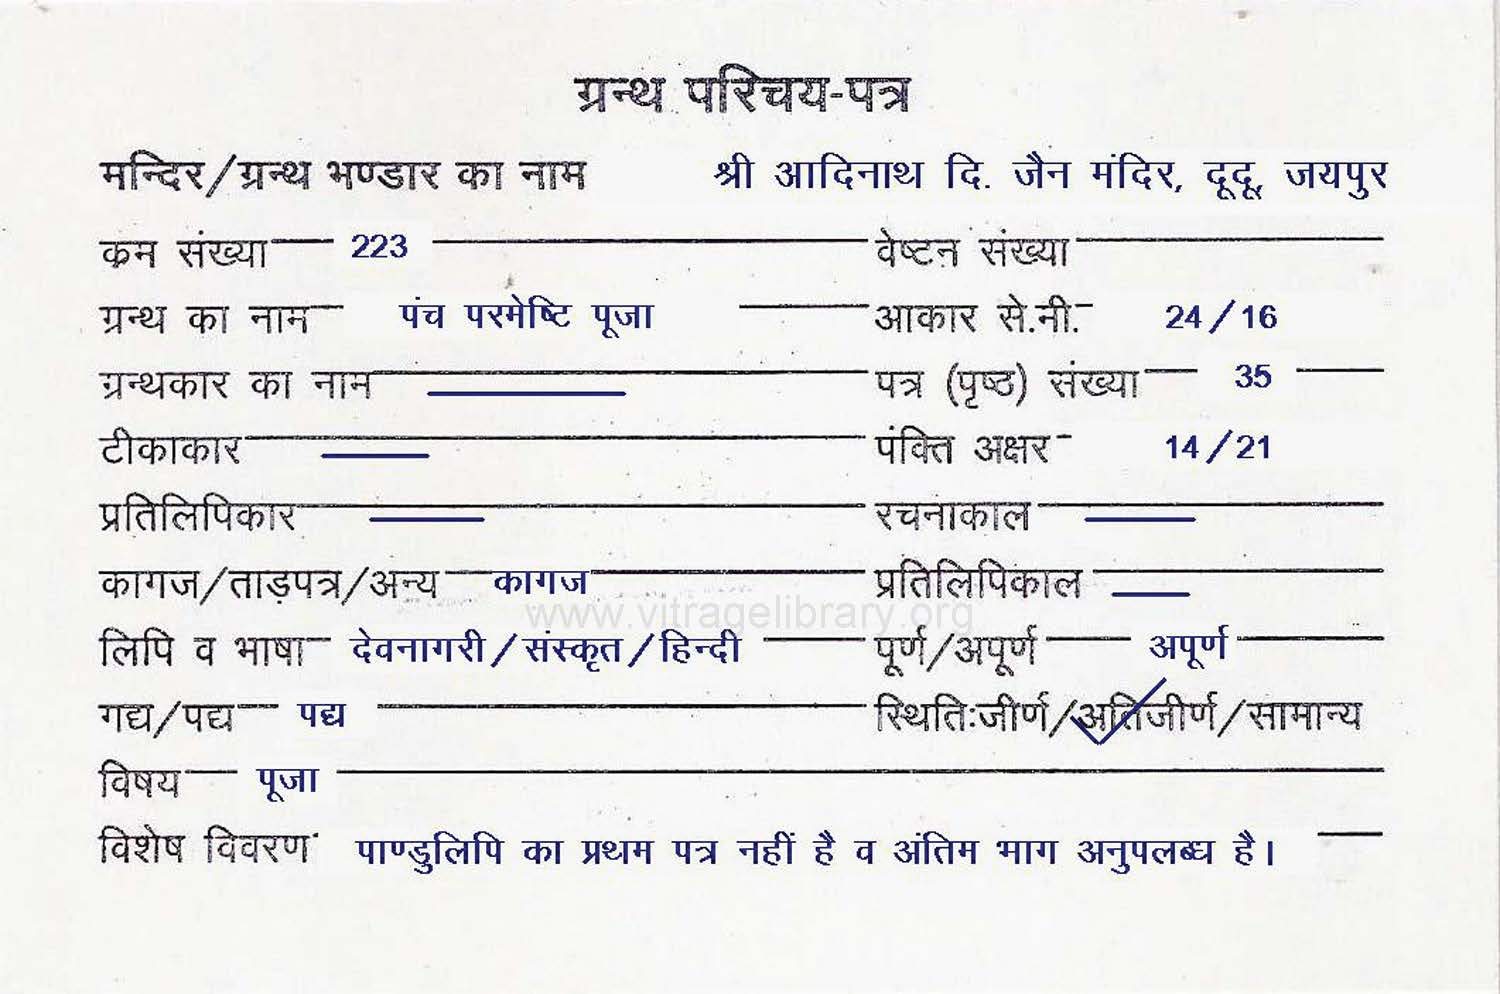 ग्रन्थ परिचय-पत्र
मन्दिर/ग्रन्थ भण्डार का नाम श्री आदिनाथ दि. जैन मंदिर, दूदू, जयपुर
क्रम संख्या 223 वेष्टन संख्या
ग्रन्थ का नाम पंच परमेष्टि पूजा आकार से.मी. 24/16
ग्रन्थकार का नाम पत्र (पृष्ठ) संख्या 35
टीकाकार पंक्ति अक्षर 14/21
प्रतिलिपिकार रचनाकाल
कागज/ताड़पत्र/अन्य कागज प्रतिलिपिकाल
www.vitragelibrary.org
लिपि व भाषा देवनागरी/संस्कृत/हिन्दी पूर्ण/अपूर्ण अपूर्ण
गद्य/पद्य पद्य स्थितिःजीर्ण/अतिजीर्ण/सामान्य
विषय पूजा
विशेष विवरण पाण्डुलिपि का प्रथम पत्र नहीं है व अंतिम भाग अनुपलब्ध है।